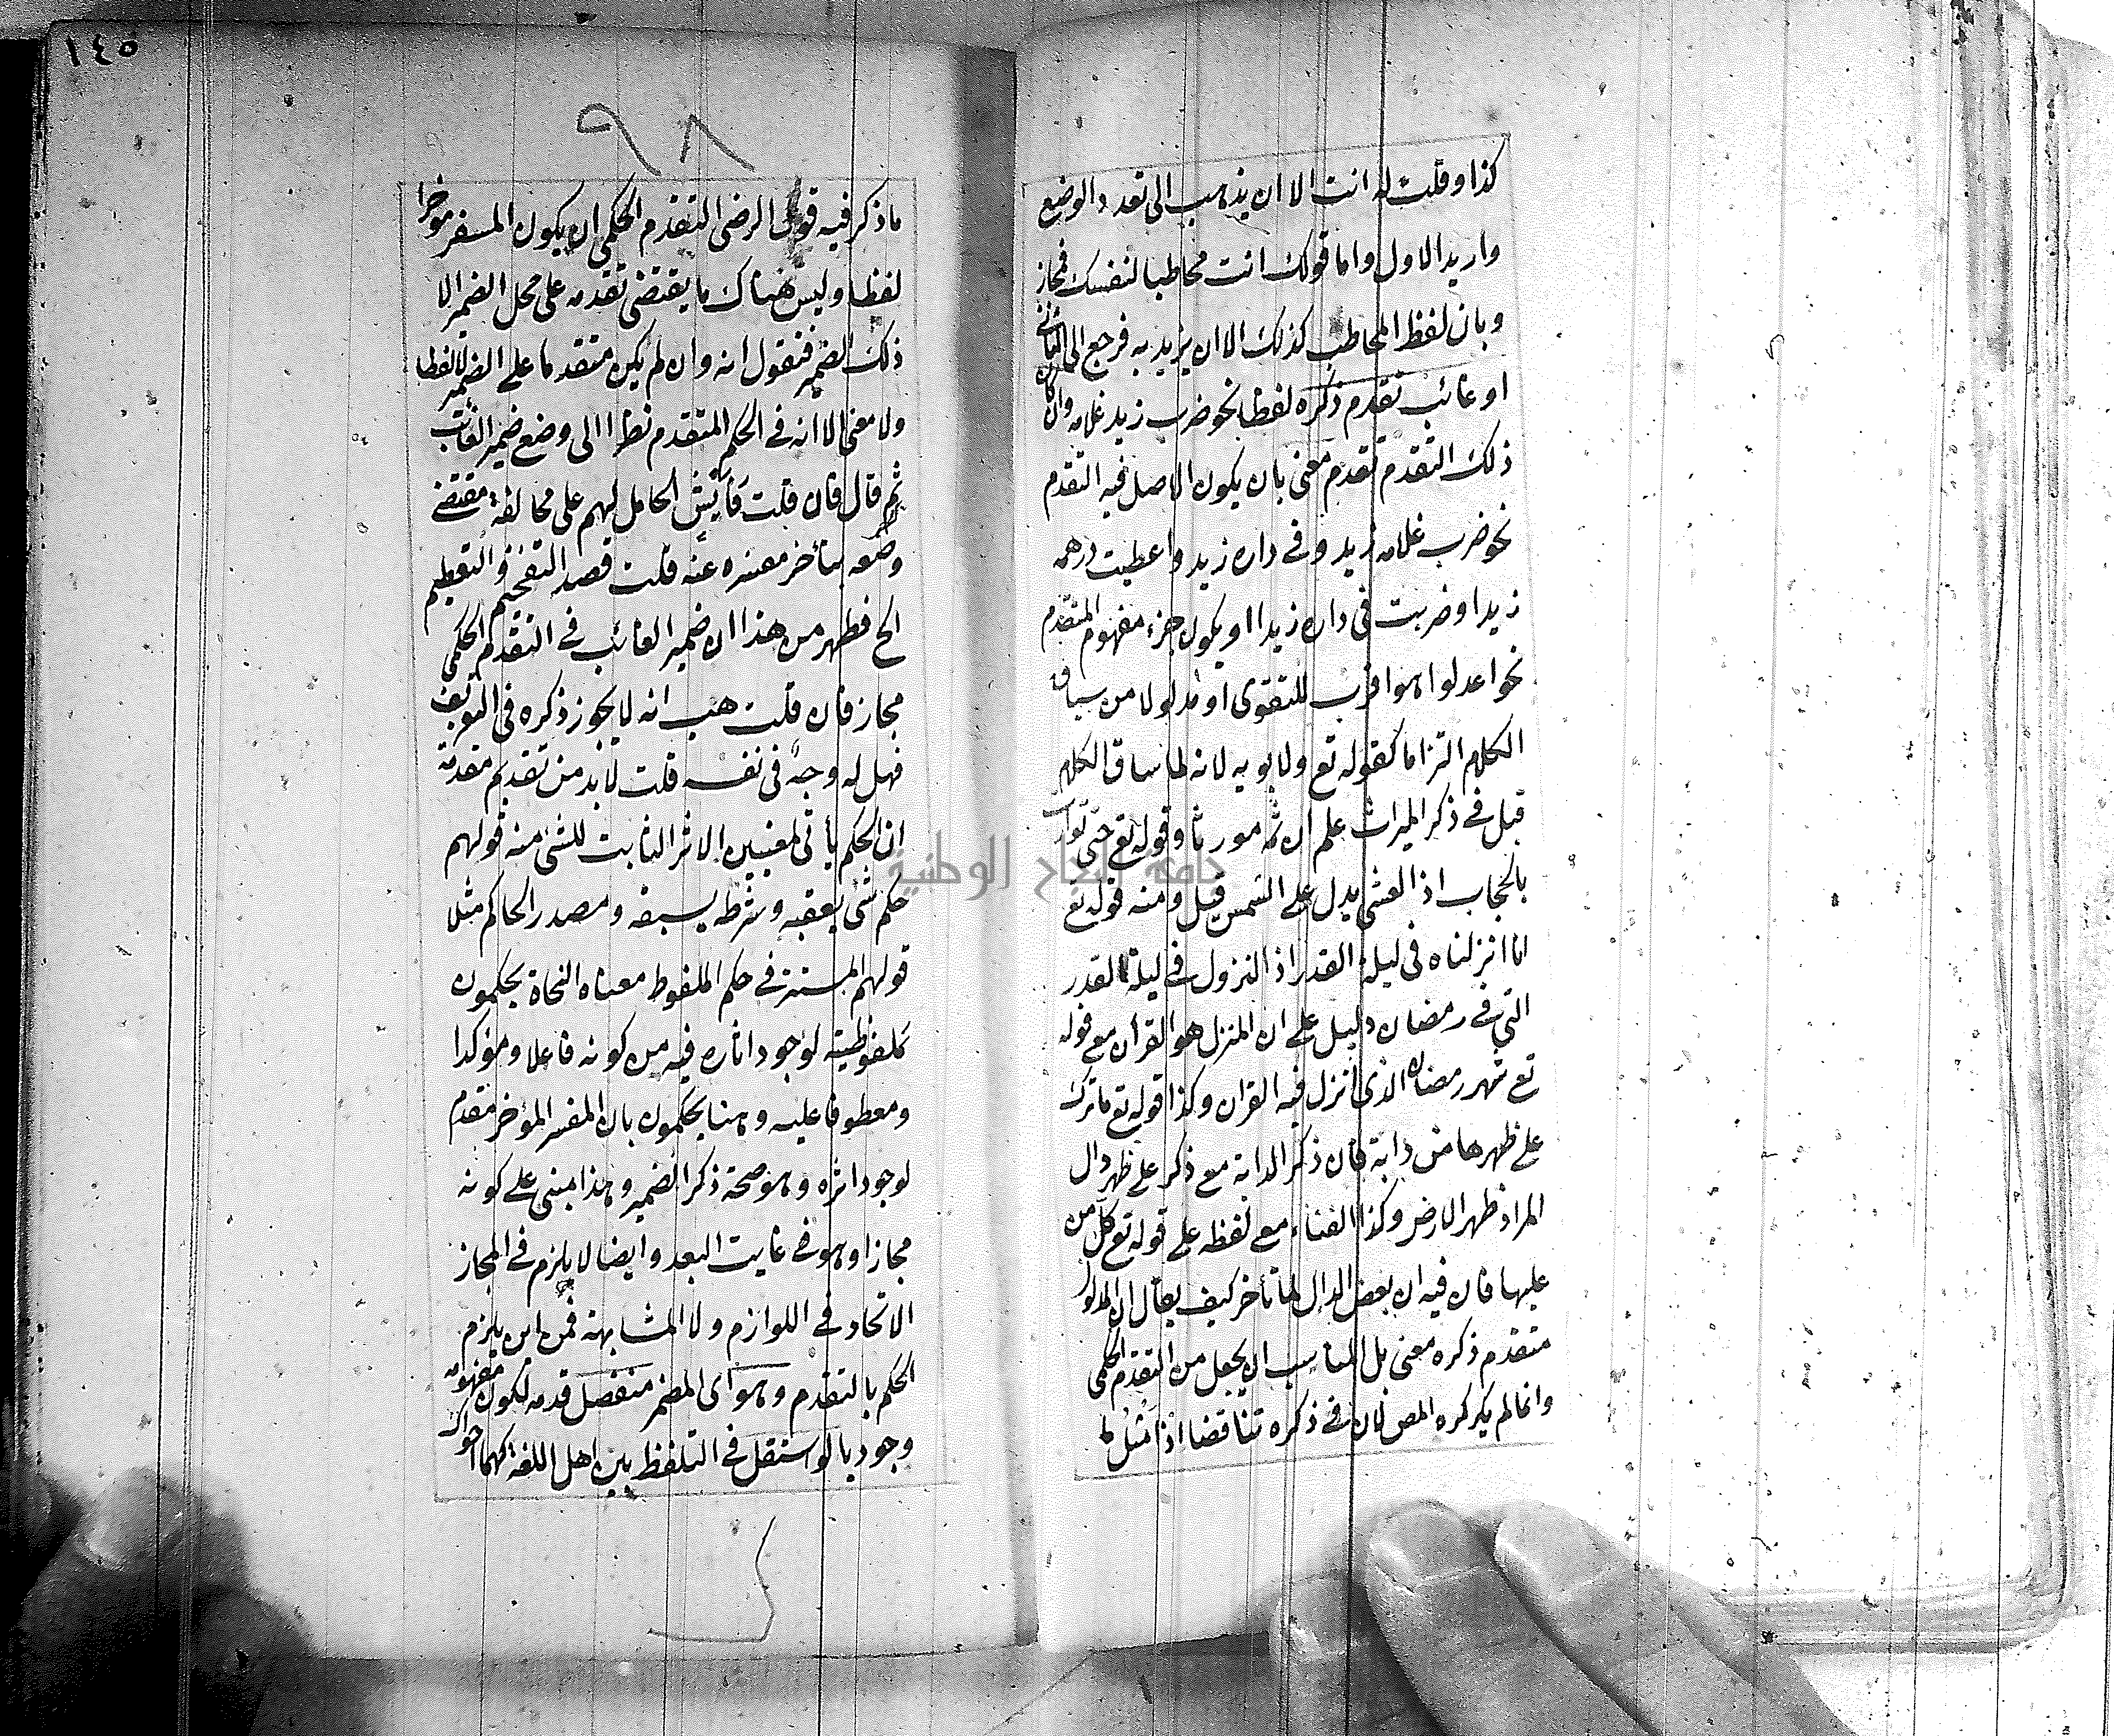 كذا وقلت له انت الا ان يذهب الى تعدد الوضع
واريد الاول واما قولك انت مخاطبا لنفسك فمجاز
وبان لفظ المخاطب كذلك الا ان يزيد به فرجع الى الثانى
او غائب تقدم ذكره لفظا نحو ضرب زيد غلامه وان كان
ذلك التقدم تقدم معنى بان يكون الاصل فيه التقدم
نحو ضرب غلامه زيد وفى داره زيد واعطيت درهمه
زيدا وضربت فى داره زيدا او يكون جزء مفهوم المتقدم
نحو اعدلوا هو اقرب للتقوى او مدلولا من سياق
الكلام التزاما كقوله تع ولابويه لانه لما ساق الكلام
قبل فى ذكر الميراث علم ان ثمه مورثا وقوله تع حتى توارت
بالحجاب اذ العشى يدل على الشمس قبل ومنه قوله تع
انا انزلناه فى ليلة القدر اذ النزول فى ليلة القدر
التى فى رمضان دليل على ان المنزل هو القرآن مع قوله
تع شهر رمضان الذى انزل فيه القران وكذا قوله تع ما ترك
على ظهرها من دابة فان ذكر الدابة مع ذكر على ظهر دال
المراد ظهر الارض وكذا الفناء مع لفظه على قوله تع كل من
عليها فان فيه ان بعض الدال لما تأخر كيف يقال ان المدلول
متقدم ذكره معنى بل المناسب ان يجعل من التقدم الحكمى
وانما لم يذكره المص لان فى ذكره تناقضا اذا مثل
١٤٥
٩٨
ما ذكر فيه قول الرضى التقدم الحكمى ان يكون المسفر مؤخرا
لفظا وليس هناك ما يقتضى تقدمه على محل الضمير الا
ذلك الضمير فنقول انه وان لم يكن متقدما على الضمير لا لفظا
ولا معنى الا انه فى الحكم المتقدم نظرا الى وضع ضمير الغائب
ثم قال فان قلت فأيش الحامل لهم على مخالفة مقتضى
وضعه بتأخر مفسره عنه قلت قصد التفخيم والتعظيم
الخ فظهر من هذا ان ضمير الغائب فى التقدم الحكمى
مجاز فان قلت هب انه لا يجوز ذكره فى التعريف
فهل له وجه فى نفسه قلت لا بد من تقديم مقدمة
ان الحكم يأتى لمعنيين الاثر الثابت للشئ منه قولهم
حكم شئ يعقبه وشرطه يسبقه ومصدر الحاكم مثلا
قولهم المستتر فى حكم الملفوظ معناه النحاة يحكمون
بملفوظيته لوجود اثاره فيه من كونه فاعلا ومؤكدا
ومعطوفا عليه وهنا يحكمون بان المفسر المؤخر مقدم
لوجود اثره وهو صحة ذكر الضمير وهذا مبنى على كونه
مجازا وهو فى غايت البعد وايضا لا يلزم فى المجاز
الاتحاد فى اللوازم ولا المشابهة فمن اين يلزم
الحكم بالتقدم وهو اى المضمر منفصل قدمه لكون مفهومه
وجوديا لو استقل فى التلفظ بين اهل اللغة
جامعة النجاح الوطنية